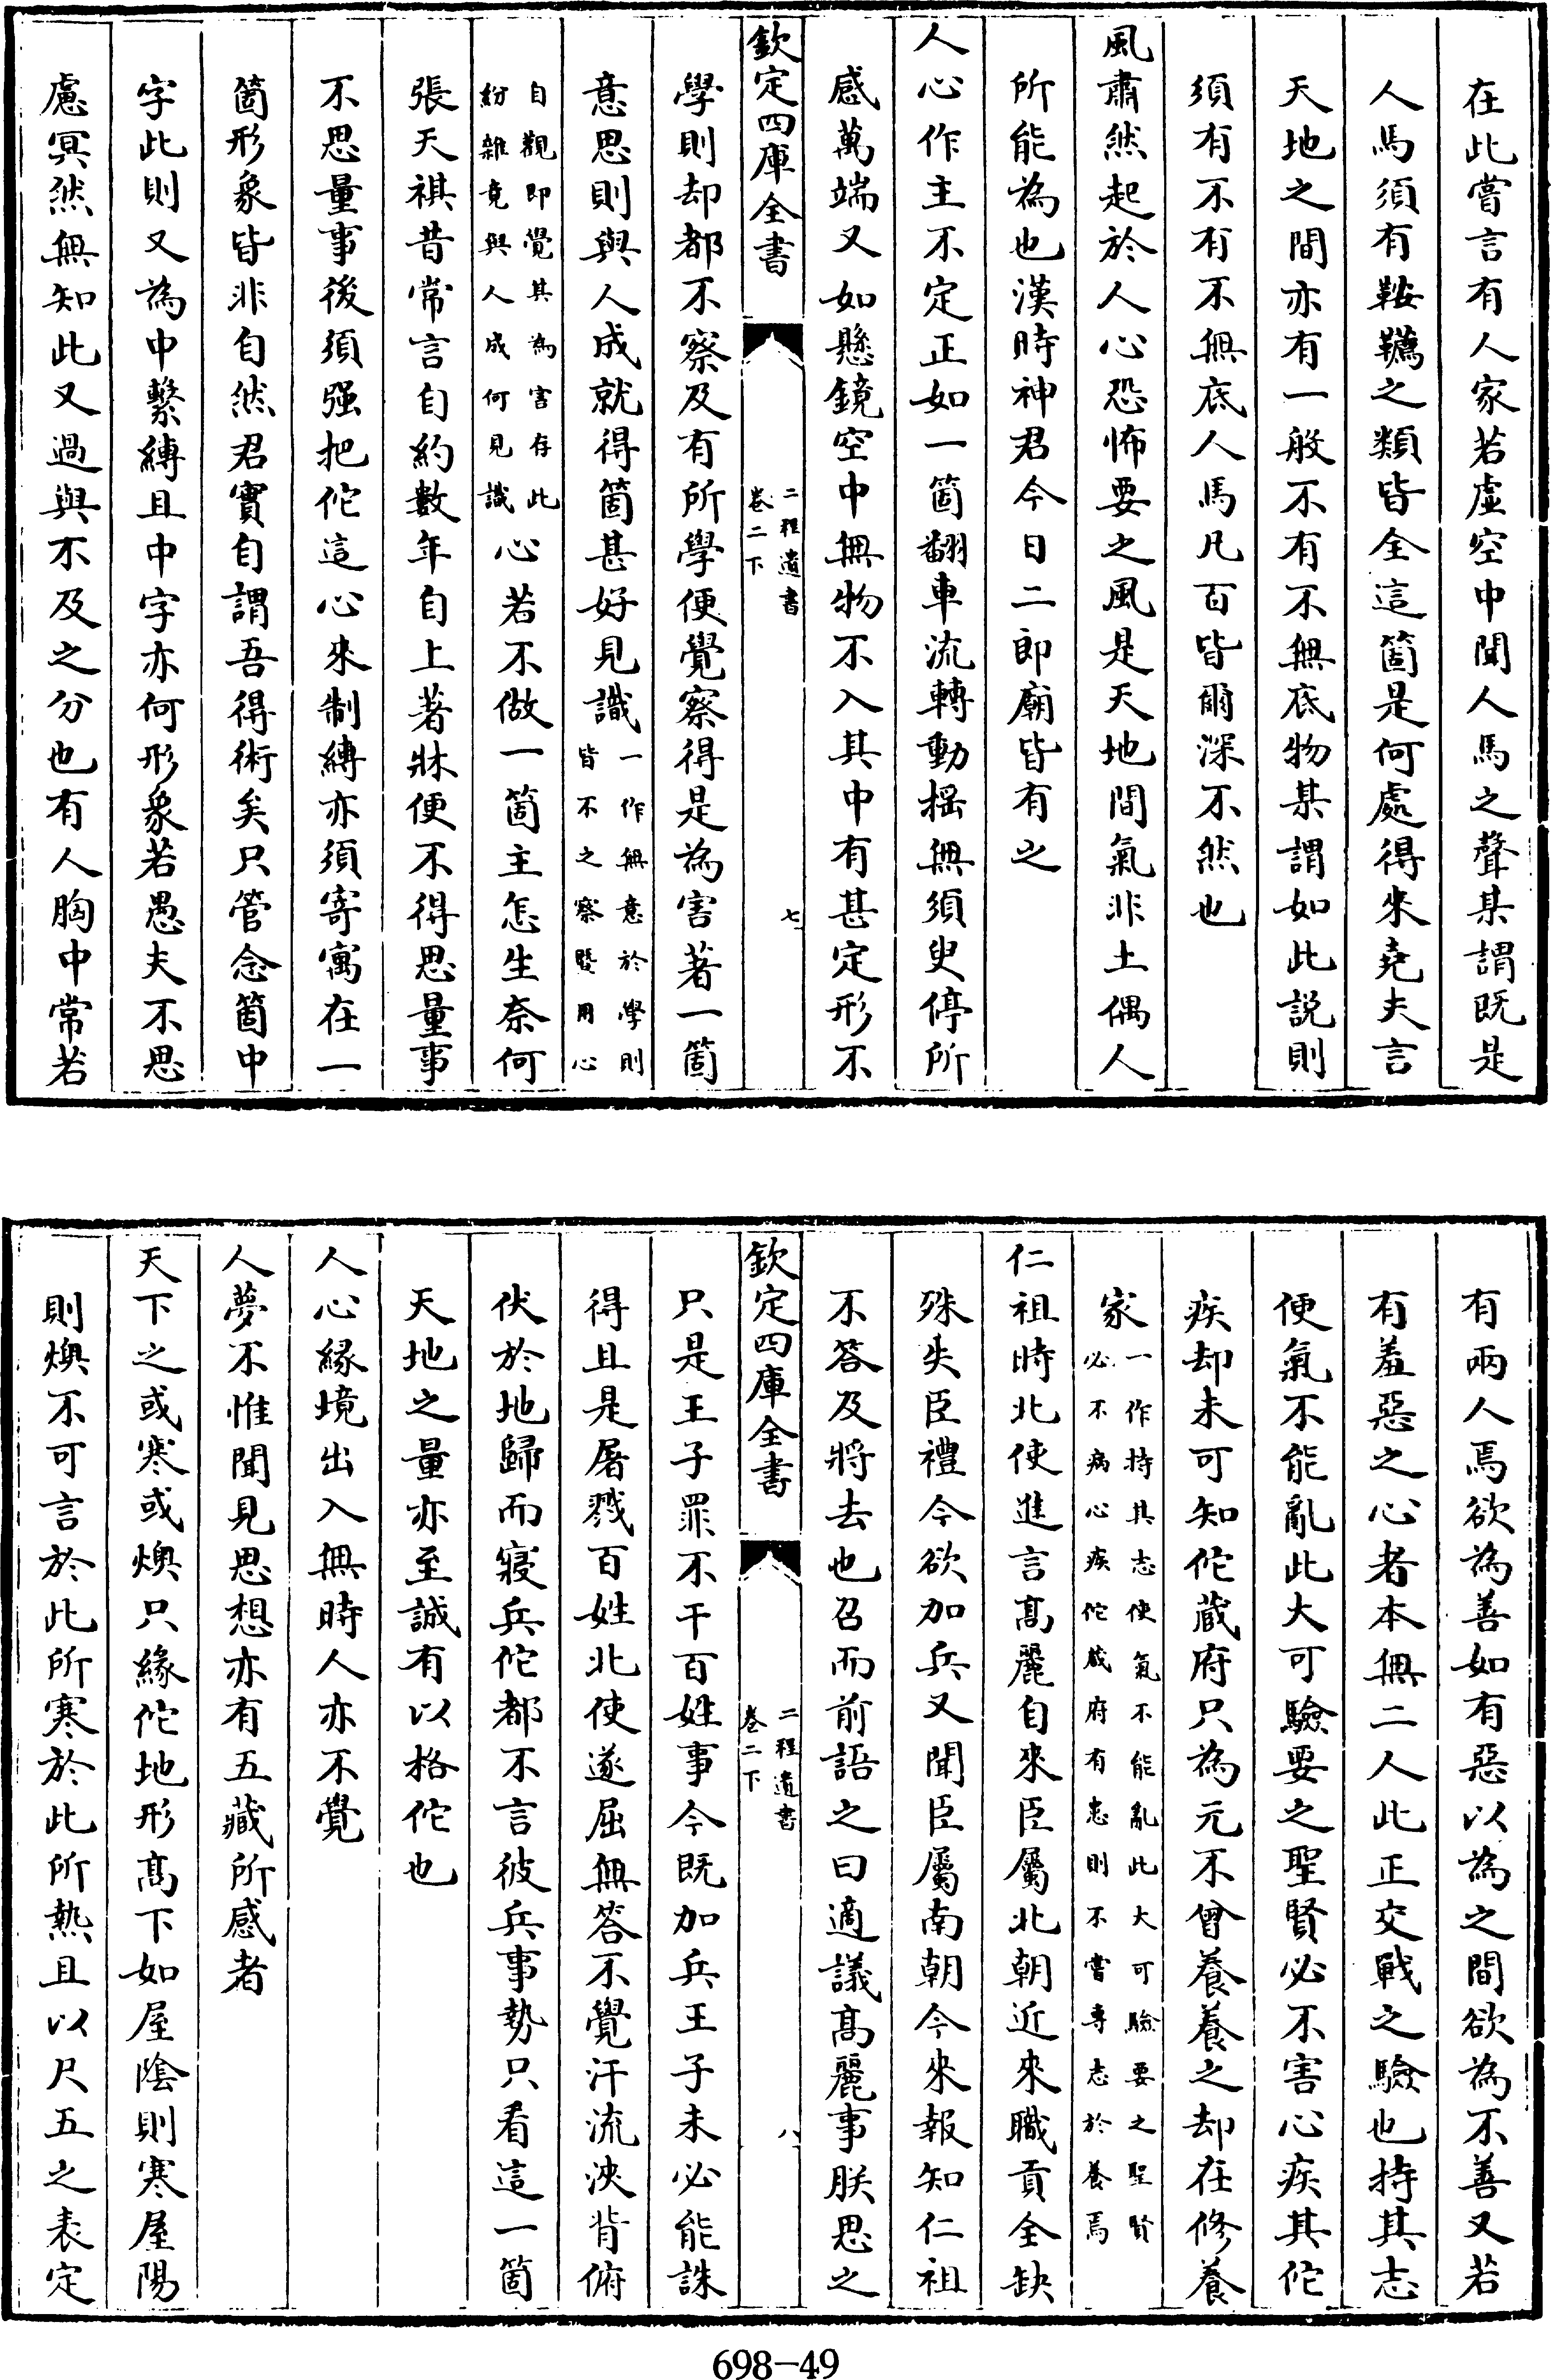 在此嘗言有人家若虛空中聞人馬之聲某謂既是
人馬須有鞍韉之類皆全這箇是何處得來堯夫言
天地之間亦有一般不有不無底物某謂如此説則
須有不有不無底人馬凡百皆爾深不然也
風肅然起於人心恐怖要之風是天地間氣非土偶人
所能為也漢時神君今日二郎廟皆有之
人心作主不定正如一箇翻車流轉動揺無須㬰停所
感萬端又如懸鏡空中無物不入其中有甚定形不
欽定四庫全書
二程遺書
卷二下
七
學則却都不察及有所學便覺察得是為害著一箇
意思則與人成就得箇甚好見識
一作無意於學則
皆不之察暨用心
自觀即覺其為害存此
紛雜竟與人成何見識
心若不做一箇主怎生奈何
張天祺昔常言自約數年自上著牀便不得思量事
不思量事後須强把佗這心來制縛亦須寄寓在一
箇形象皆非自然君實自謂吾得術矣只管念箇中
字此則又為中繫縛且中字亦何形象若愚夫不思
慮冥然無知此又過與不及之分也有人胸中常若
有兩人焉欲為善如有惡以為之間欲為不善又若
有羞惡之心者本無二人此正交戰之驗也持其志
便氣不能亂此大可驗要之聖賢必不害心疾其佗
疾却未可知佗蔵府只為元不曾養養之却在修養
家
一作持其志使氣不能亂此大可驗要之聖賢
必不病心疾佗蔵府有患則不嘗専志於養焉
仁祖時北使進言髙麗自來臣屬北朝近來職貢全缺
殊失臣禮今欲加兵又聞臣屬南朝今來報知仁祖
不答及將去也召而前語之曰適議髙麗事朕思之
欽定四庫全書
二程遺書
卷二下
八
只是王子罪不干百姓事今既加兵王子未必能誅
得且是屠戮百姓北使遂屈無答不覺汗流浹背俯
伏於地歸而寢兵佗都不言彼兵事勢只看這一箇
天地之量亦至誠有以格佗也
人心緣境出入無時人亦不覺
人夢不惟聞見思想亦有五藏所感者
天下之或寒或燠只緣佗地形髙下如屋隂則寒屋陽
則燠不可言於此所寒於此所熱且以尺五之表定
698-49